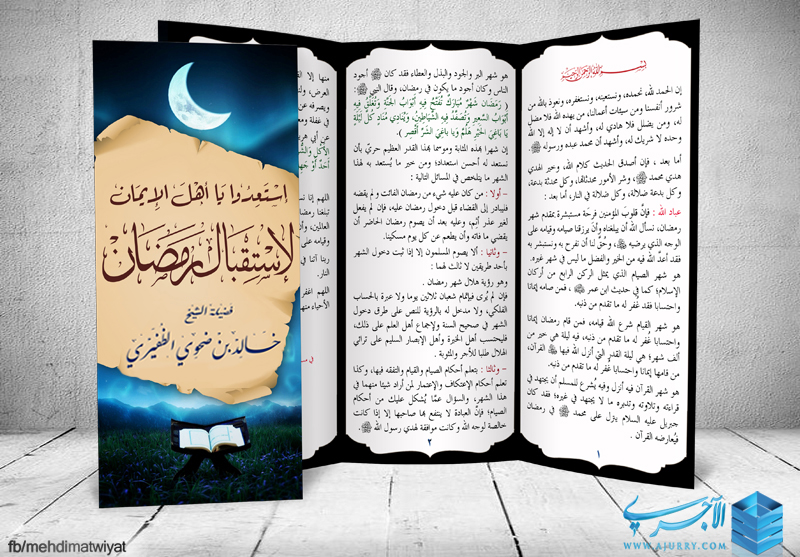 استعدوا يا أهل الإيمان
لاستقبال رمضان
فضيلة الشيخ
خالد بن ضحوي الظفيري
بسم الله الرحمن الرحيم
إن الحمد لله، نحمده، ونستعينه، ونستغفره، ونعوذ بالله من
شرور أنفسنا ومن سيئات أعمالنا، من يهده الله فلا مضل
له، ومن يضلل فلا هادي له، وأشهد أن لا إله إلا الله
وحده لا شريك له، وأشهد أن محمد عبده ورسوله ﷺ.
أما بعد ، فإن أصدق الحديث كلام الله، وخير الهدي
هدي محمد ﷺ، وشر الأمور محدثاتها، وكل محدثة بدعة،
وكل بدعة ضلالة، وكل ضلالة في النار، أما بعد :
عباد الله : فإن قلوب المؤمنين فرحة مستبشرة بمقدم شهر
رمضان، نسأل الله أن يبلغناه وأن يرزقنا صيامه وقيامه على
الوجه الذي يرضيه ﷻ، وحق لنا أن نفرح به ونستبشر به
فقد أعد الله فيه من الخير والفضل ما ليس في شهر غيره.
هو شهر الصيام الذي يمثل الركن الرابع من أركان
الإسلام؛ كما في حديث ابن عمر ، فمن صامه إيمانا
واحتسابا فقد غفر له ما تقدم من ذنبه.
هو شهر القيام شرع الله قيامه، فمن قام رمضان إيمانا
واحتسابا غفر له ما تقدم من ذنبه، فيه ليلة هي خير من
ألف شهر؛ هي ليلة القدر التي أنزل الله فيها القرآن،
من قامها إيمانا واحتسابا غفر له ما تقدم من ذنبه.
هو شهر القرآن فيه أنزل وفيه يشرع للمسلم أن يجتهد في
قراءته وتلاوته وتدبره ما لا يجتهد في غيره؛ فقد كان
جبريل عليه السلام ينزل على محمد ﷺ في رمضان
فيعارضه القرآن .
١
هو شهر البر والجود والبذل والعطاء فقد كان ﷺ أجود
الناس وكان أجود ما يكون في رمضان، وقال النبي ﷺ:
( رمضان شهر مبارك تفتح فيه أبواب الجنة وتغلق فيه
أبواب السعير وتصفد فيه الشياطين، وينادي مناد كل ليلة
يا باغي الخير هلم ويا باغي الشر أقصر )
إن شهرا بهذه المثابة وموسما بهذا القدر العظيم حري بأن
نستعد له أحسن استعداد؛ ومن خير ما يستعد به لهذا
الشهر ما يتلخص في المسائل التالية :
– أولا : من كان عليه شيء من رمضان الفائت ولم يقضه
فليبادر إلى القضاء قبل دخول رمضان عليه، فإن لم يفعل
لغير عذر أثم، وعليه بعد أن يصوم رمضان الحاضر أن
يقضي ما فاته وأن يطعم عن كل يوم مسكينا.
– وثانيا : ألا يصوم المسلمون إلا إذا ثبت دخول الشهر
بأحد طريقين لا ثالث لهما :
وهو رؤية هلال شهر رمضان .
فإن لم يُرى فبإتمام شعبان ثلاثين يوما ولا عبرة بالحساب
الفلكي، ولا مدخل له بالرؤية للنص على طرق دخول
الشهر في صحيح السنة ولإجماع أهل العلم على ذلك،
فليحتسب أهل الخبرة وأهل الإبصار السليم على ترائي
الهلال طلبا للأجر والمثوبة .
– وثالثا : بتعلم أحكام الصيام والقيام والتفقه فيها، وكذا
تعلم أحكام الإعتكاف والإعتمار لمن أراد شيئا منهما في
هذا الشهر، والسؤال عما يُشكل عليك من أحكام
الصيام؛ فإن العبادة لا ينتفع بها صاحبها إلا إذا كانت
خالصة لوجه الله وكانت موافقة لهدي رسول الله ﷺ.
٢
fb/mehdimatwiyat
الآجري
WWW.AJURRY.COM